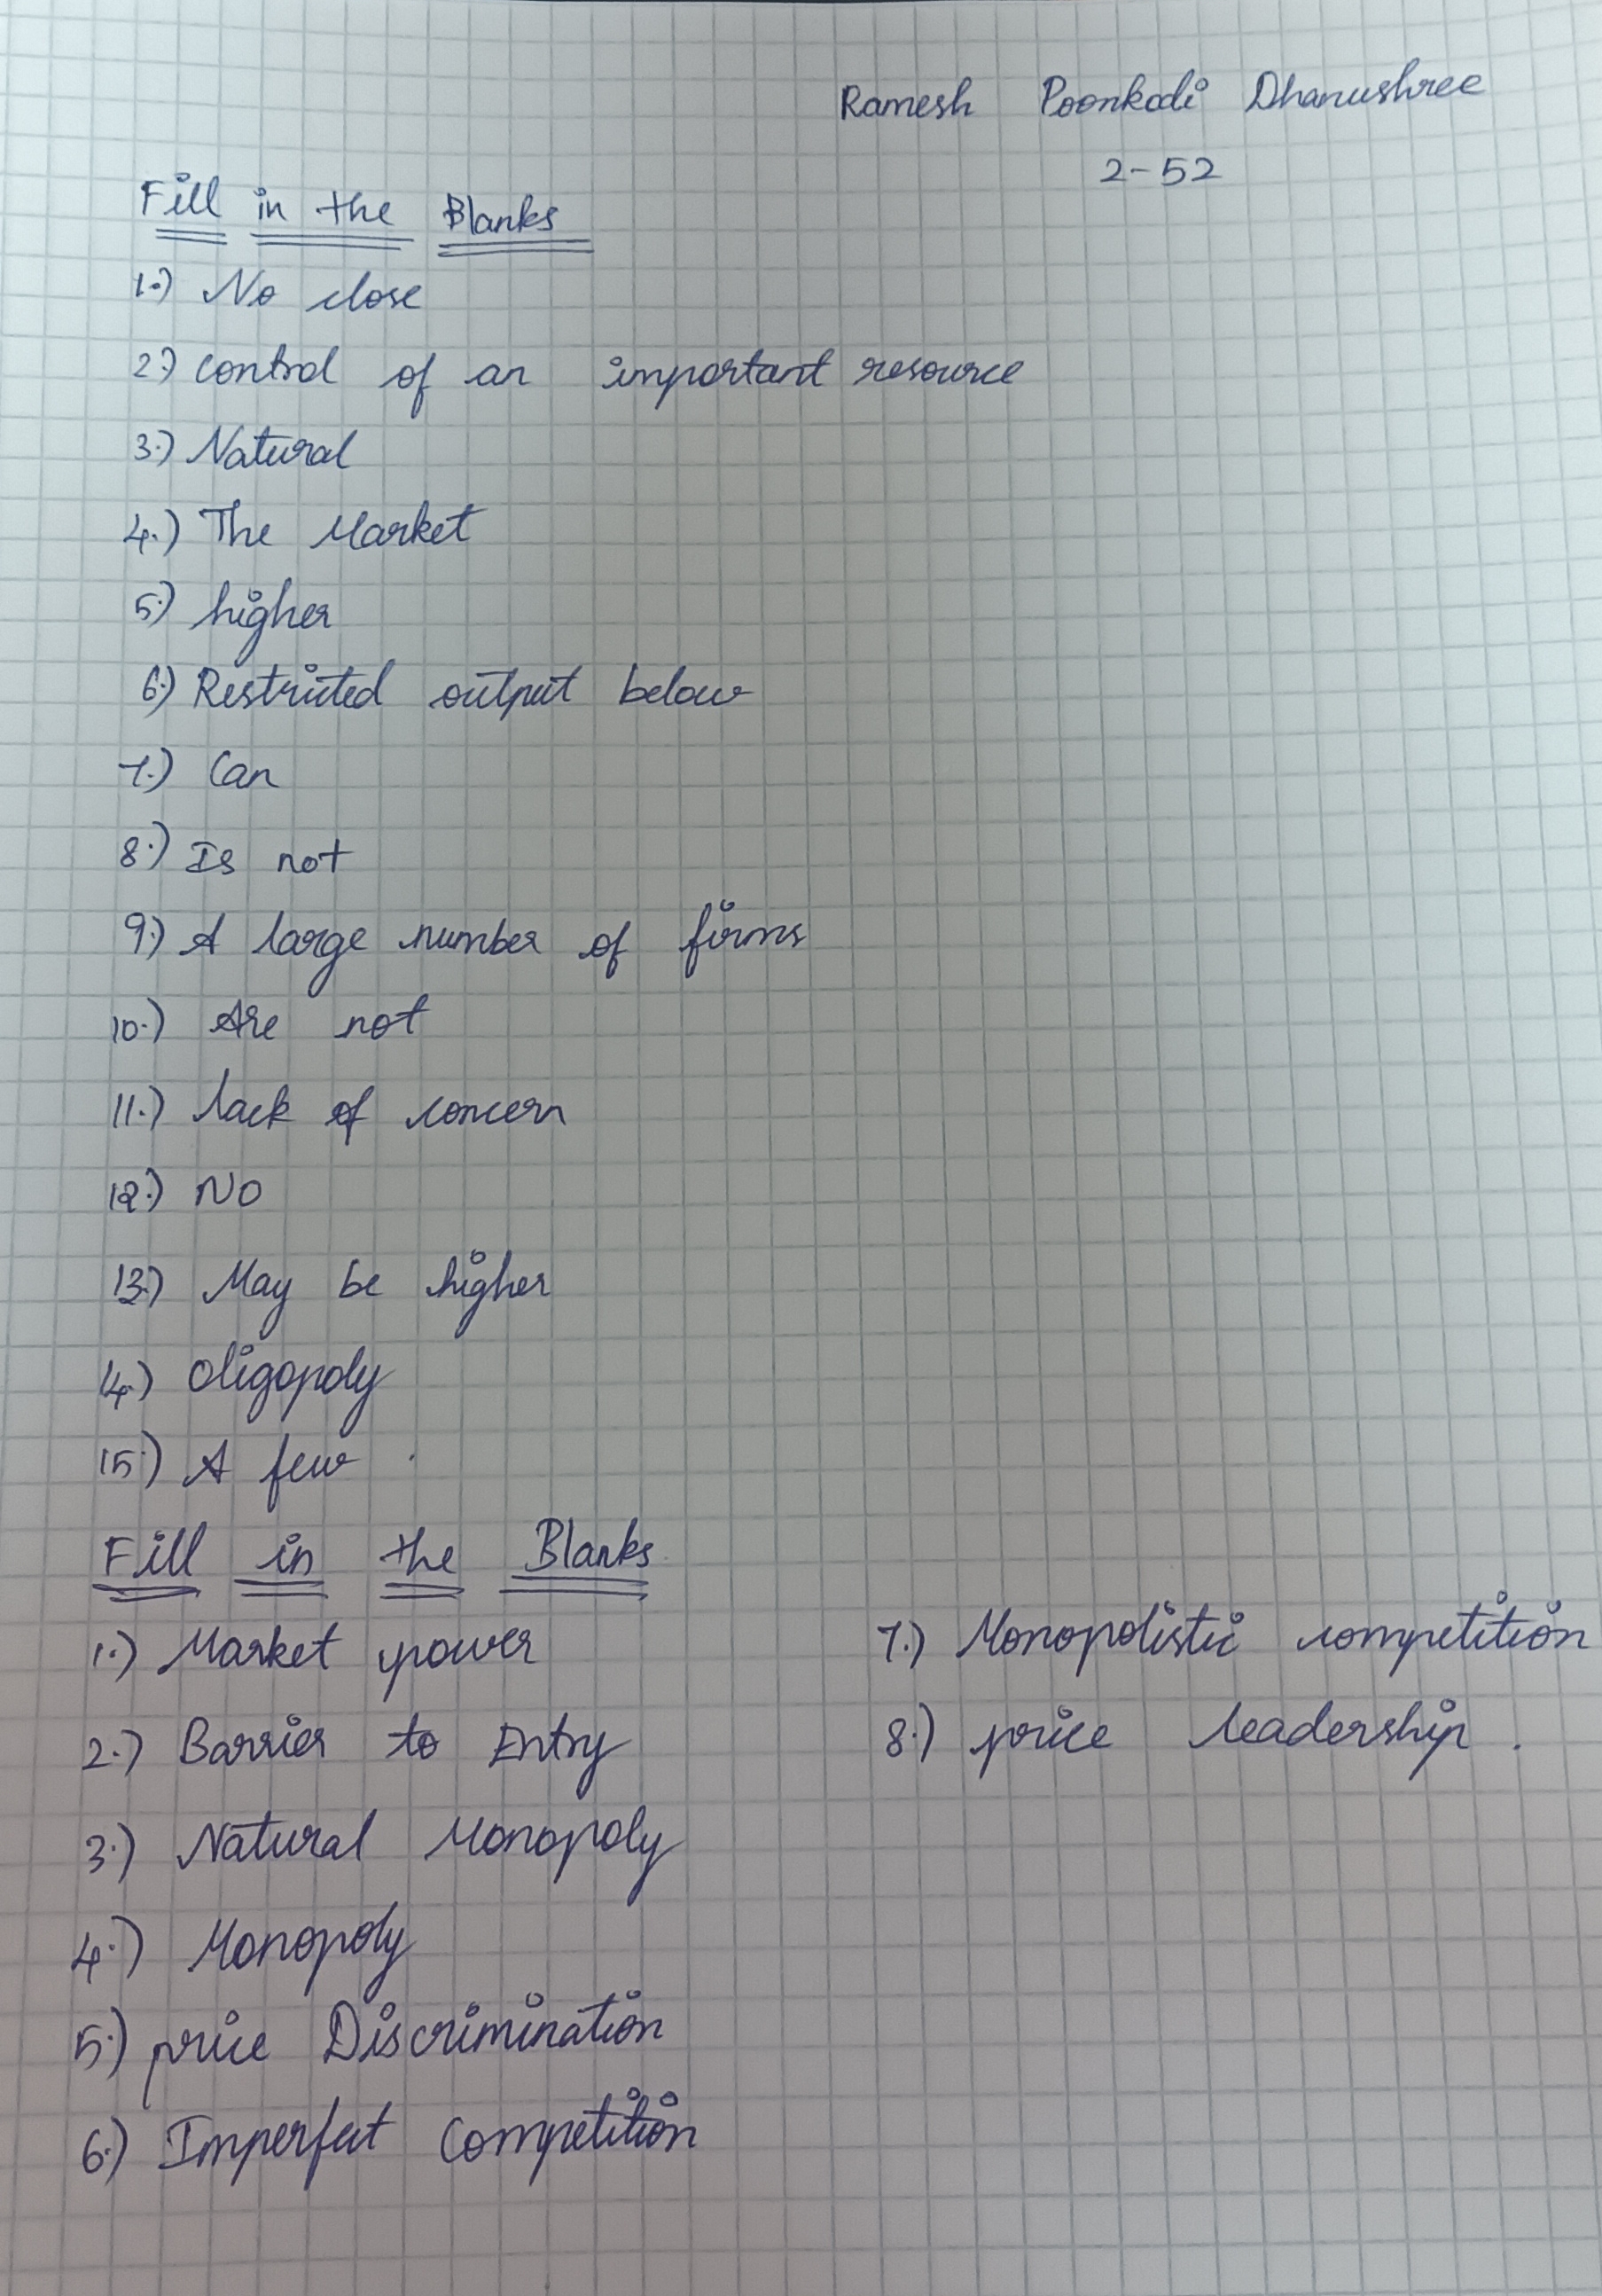 Ramesh Poonkodi Dhanushree
2-52
Fill in the Blanks
1.) No close
2.) control of an important resource
3.) Natural
4.) The Market
5.) higher
6.) Restricted output below
7.) Can
8.) Is not
9.) A large number of firms
10.) Are not
11.) lack of concern
12.) No
13.) May be higher
14.) Oligopoly
15.) A few
Fill in the Blanks
1.) Market power
2.) Barrier to Entry
3.) Natural Monopoly
4.) Monopoly
5.) price Discrimination
6.) Imperfect Competition
7.) Monopolistic competition
8.) price leadership.